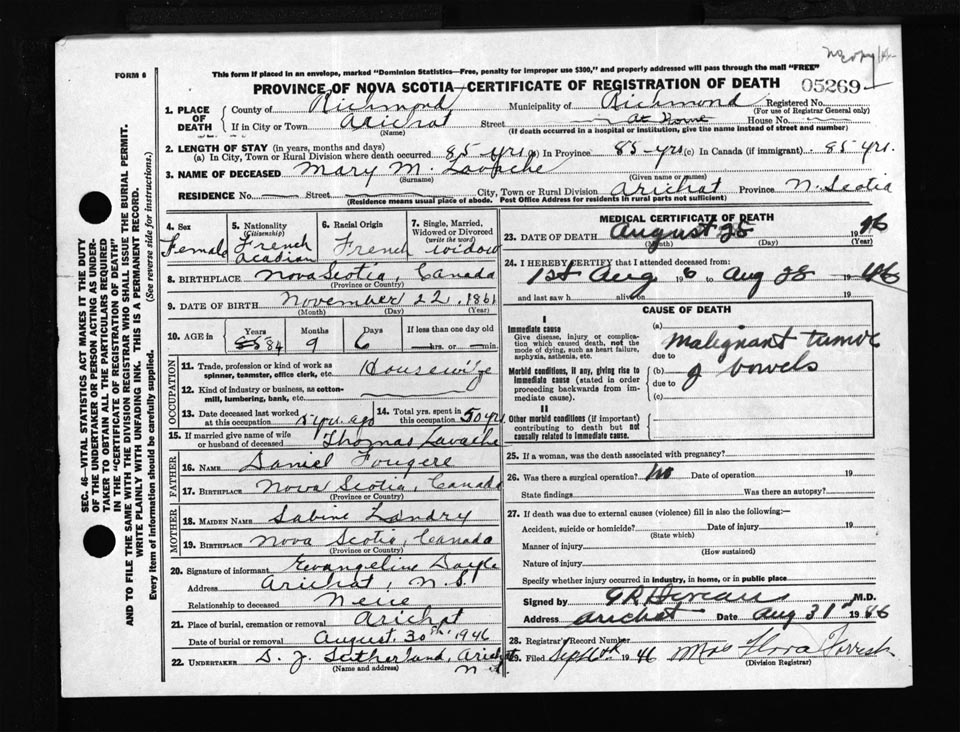 no copy
FORM 6
This form if placed in an envelope, marked "Dominion Statistics—Free, penalty for improper use $300," and properly addressed will pass through the mail "FREE"
PROVINCE OF NOVA SCOTIA—CERTIFICATE OF REGISTRATION OF DEATH 05269
1. PLACE OF DEATH County of Richmond Municipality of Richmond Registered No. (For use of Registrar General only)
If in City or Town Arichat (Name) Street At Home House No.
(If death occurred in a hospital or institution, give the name instead of street and number)
2. LENGTH OF STAY (in years, months and days)
(a) In City, Town or Rural Division where death occurred 85-yrs (b) In Province 85-yrs (c) In Canada (if immigrant) 85 yrs.
3. NAME OF DECEASED Mary M. Lavache
(Surname) (Given name or names)
RESIDENCE No. Street City, Town or Rural Division Arichat Province N. Scotia
(Residence means usual place of abode. Post Office Address for residents in rural parts not sufficient)
4. Sex Female
5. Nationality (Citizenship) French Acadian
6. Racial Origin French
7. Single, Married, Widowed or Divorced (write the word) widow
8. BIRTHPLACE Nova Scotia, Canada
(Province or Country)
9. DATE OF BIRTH November 22, 1861
(Month) (Day) (Year)
10. AGE in Years 84 Months 9 Days 6 If less than one day old hrs. or min.
OCCUPATION
11. Trade, profession or kind of work as spinner, teamster, office clerk, etc. Housewife
12. Kind of industry or business, as cotton-mill, lumbering, bank, etc.
13. Date deceased last worked at this occupation 5 yrs. ago 14. Total yrs. spent in this occupation 50 yrs
15. If married give name of wife or husband of deceased Thomas Lavache
FATHER
16. NAME Daniel Fougere
17. BIRTHPLACE Nova Scotia, Canada
(Province or Country)
MOTHER
18. MAIDEN NAME Sabine Landry
19. BIRTHPLACE Nova Scotia, Canada
(Province or Country)
20. Signature of informant Evangeline Doyle
Address Arichat, N.S.
Relationship to deceased Neice
21. Place of burial, cremation or removal Arichat
Date of burial or removal August 30th, 1946
22. UNDERTAKER D. J. Sutherland, Arichat N.S.
(Name and address)
MEDICAL CERTIFICATE OF DEATH
23. DATE OF DEATH August 28 1946
(Month) (Day) (Year)
24. I HEREBY CERTIFY that I attended deceased from:
1st Aug 196 to Aug 28 1946
and last saw h alive on 19
CAUSE OF DEATH
I
Immediate cause
Give disease, injury or complication which caused death, not the mode of dying, such as heart failure, asphyxia, asthenia, etc.
Morbid conditions, if any, giving rise to immediate cause (stated in order proceeding backwards from immediate cause).
II
Other morbid conditions (if important) contributing to death but not causally related to immediate cause.
(a) malignant tumor
due to
(b) of bowels
due to
(c)
25. If a woman, was the death associated with pregnancy?
26. Was there a surgical operation? No Date of operation 19
State findings Was there an autopsy?
27. If death was due to external causes (violence) fill in also the following:—
Accident, suicide or homicide? Date of injury 19
(State which)
Manner of injury
(How sustained)
Nature of injury
Specify whether injury occurred in industry, in home, or in public place
Signed by M.D.
Address arichat Date Aug 31st 1946
28. Registrar's Record Number
29. Filed Sept 1946 Mrs Flora Forrest
(Division Registrar)
SEC. 46—VITAL STATISTICS ACT MAKES IT THE DUTY
OF THE UNDERTAKER OR PERSON ACTING AS UNDER-
TAKER TO OBTAIN ALL THE PARTICULARS REQUIRED
IN THE "CERTIFICATE OF REGISTRATION OF DEATH"
AND TO FILE THE SAME WITH THE DIVISION REGISTRAR WHO SHALL ISSUE THE BURIAL PERMIT.
WRITE PLAINLY WITH UNFADING INK. THIS IS A PERMANENT RECORD.
Every item of information should be carefully supplied. (See reverse side for instructions.)